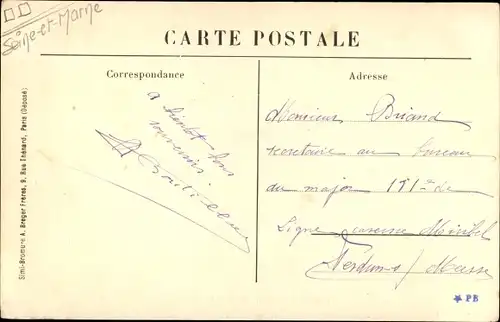 Seine-et-Marne
CARTE POSTALE
Correspondance
a bientot bon
souvenir
Adresse
Monsieur Briand
secretaire au bureau
du major 151me de
Ligne caserne Miribel
Verdun s/ Meuse
Simi-Bromure A. Breger Frères, 9, Rue Thénard, Paris (Déposé)
PB